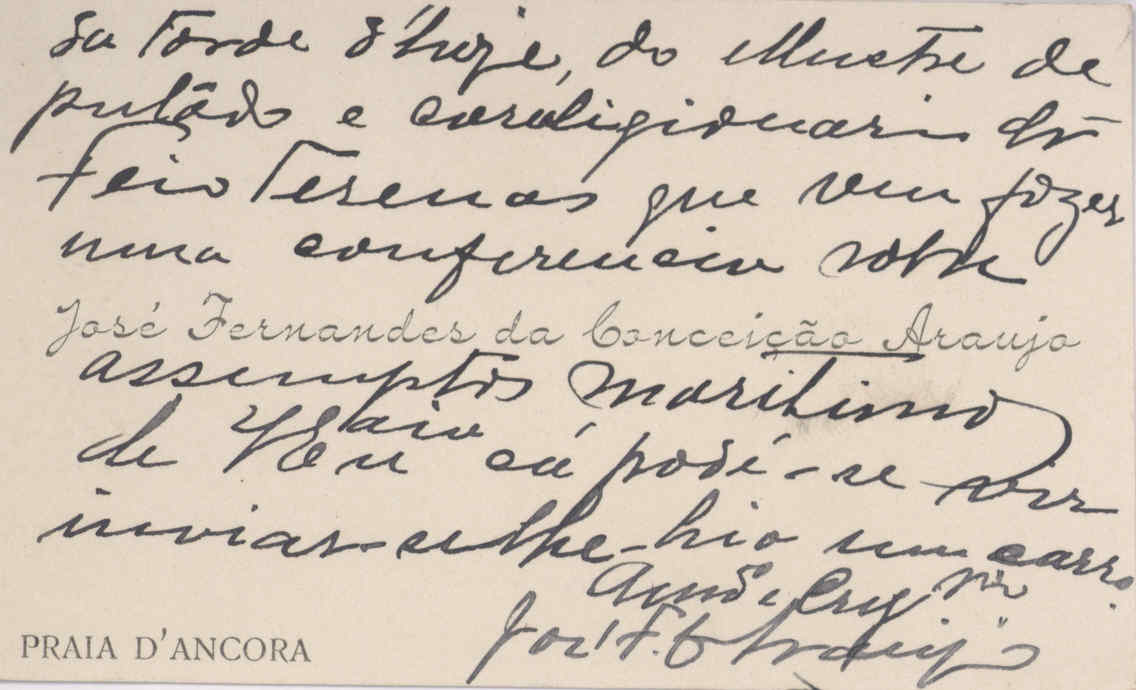 da tarde d'hoje, do illustre de
putádo e coreligionario dr
Feio Terenas que vem fazer
uma conferencia sobre
José Fernandes da Conceição Araujo
assumptos maritimos
de V Ex cá podé-se vir
inviar-se-lhe-hia um carro.
José F. C. Araujo
PRAIA D'ANCORA